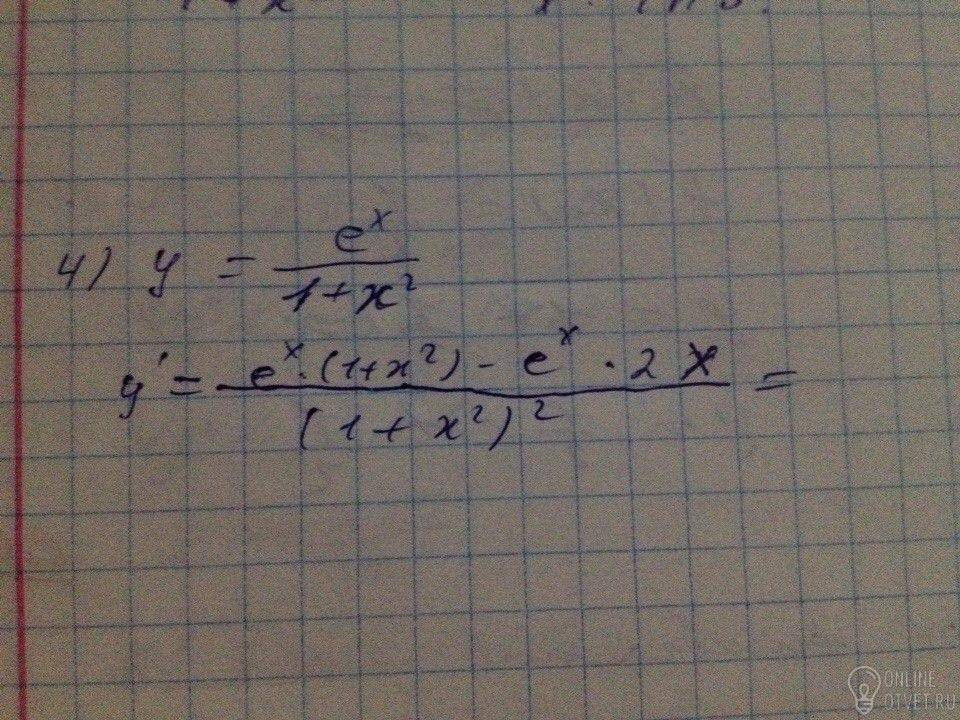 4) y = e^x / (1+x²)
y' = (e^x·(1+x²) - e^x·2x) / (1+x²)² =
ONLINE
OTVET.RU